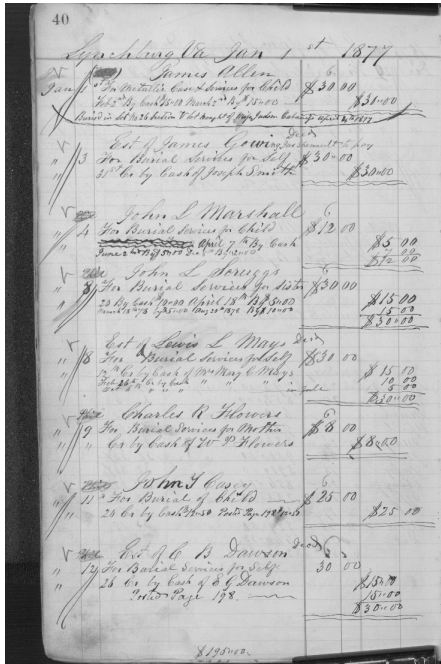 40
Lynchburg Va Jan 1st 1877
James Allen 6
Jan 1 " For Metallic Case & Services for Child $30 00
Feb 2nd By Cash 15.00 March 2nd By $15.00 $30.00
Buried in Lot No 26 Section
Est of James Gowin Dead
" 3 For Burial Services for Self $30.00
" 31st Cr by Cash of Joseph Smith $30.00
John L Marshall 6
" 4 For Burial Services for Child $12 00
April 7th By Cash $5 00
7 00
$12 00
John L Scruggs
" 8 For Burial Services for Sister $30 00
20 By Cash 10.00 April 18th By 5.00 $15 00
15 00
$30.00
Est of Lewis L Mays Dead
" 8 For Burial Services for Self $30 00
Cr by Cash of Mrs Mary C Mays $15 00
10 00
5 00
$30.00
Charles R Flowers 6
" 9 For Burial Services for Mother $8 00
" " Cr by Cash of W P Flowers $8.00
John T Casey 6
" 11 " For Burial of Child $25 00
" 20 Cr by Cash 12.50 Posted Page 198 $25 00
Est of C B Dawson Dead 6
" 14 For Burial Services for Self 30 00
" 26 Cr by Cash of E G Dawson $15.00
Posted Page 198 15.00
$30.00
$195.00